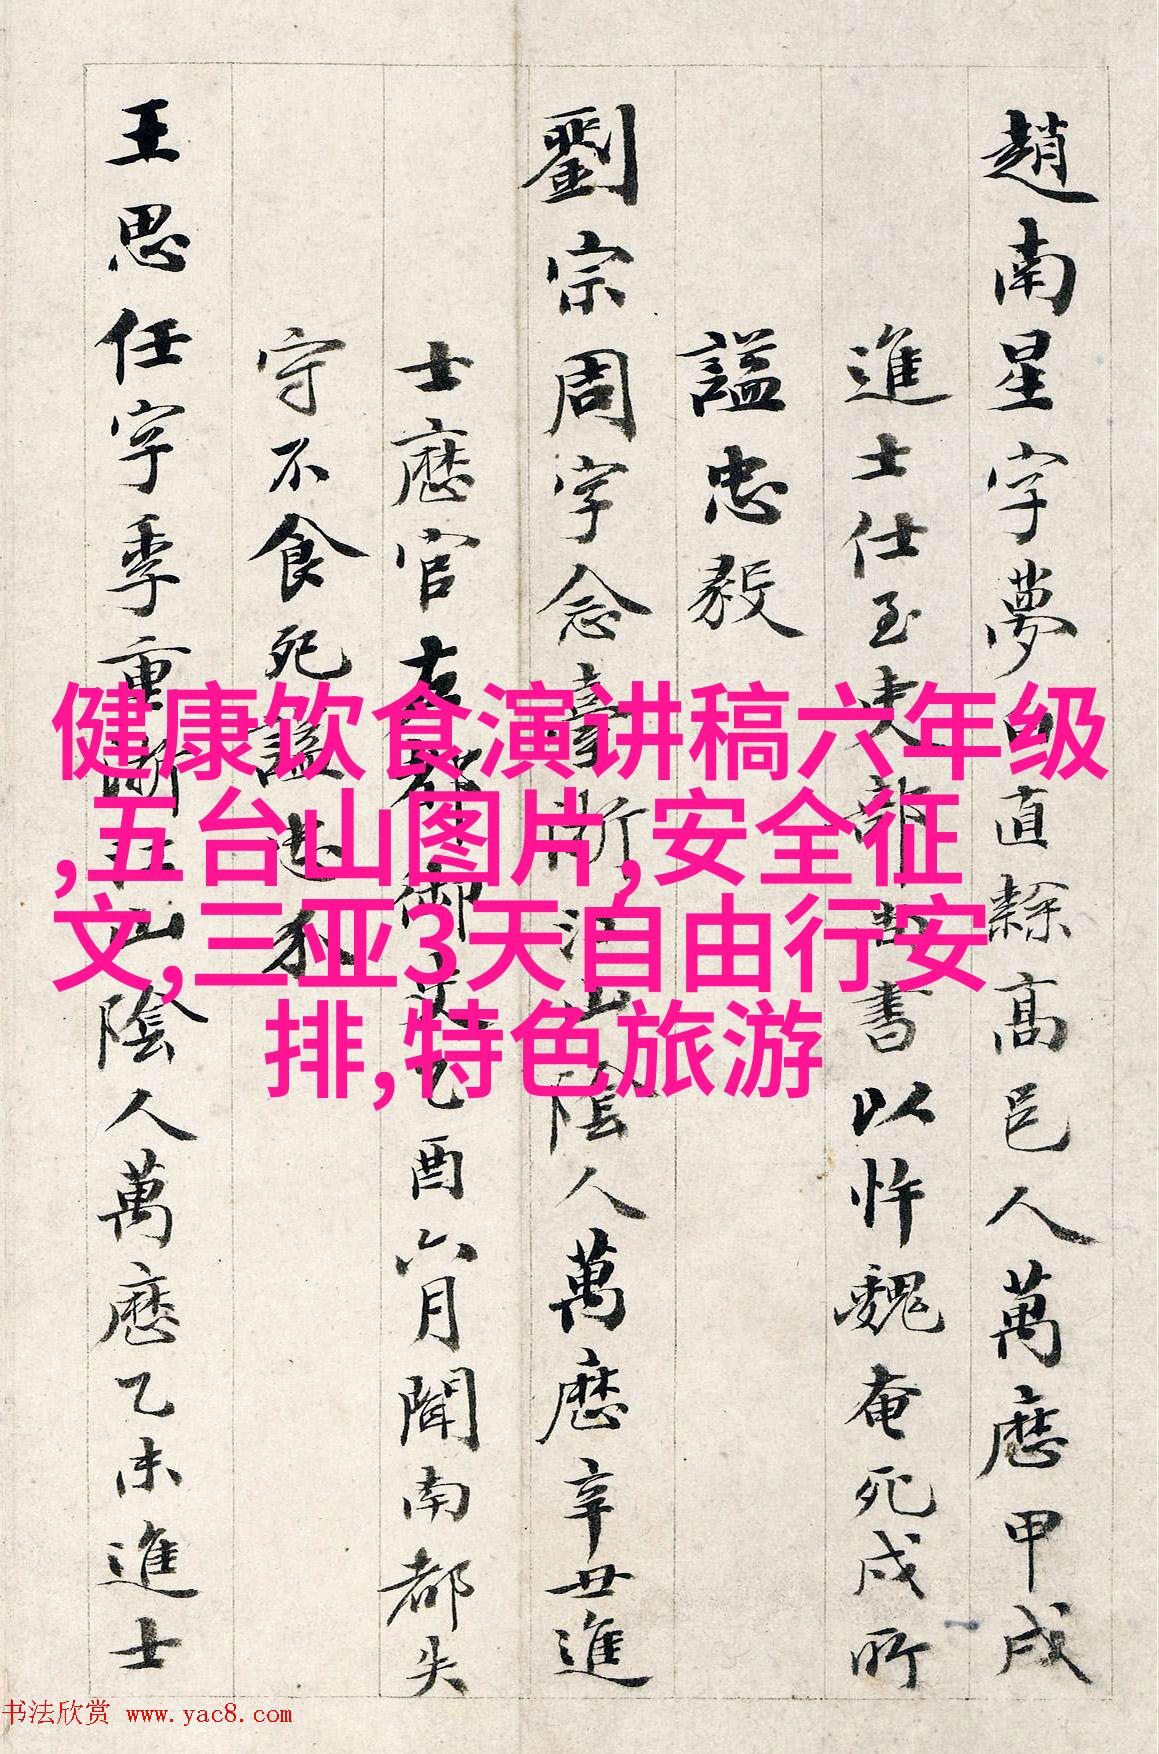 趙南星字夢白直隸高邑人萬曆甲戌
進士仕至吏部尚書以忤魏奄死戍所
謚忠毅
劉宗周字念臺浙江山陰人萬曆辛丑進
士歷官左都御史乙酉六月聞南都失
守不食死謚忠
王思任字季重浙江山陰人萬曆乙未進士
健康饮食演讲稿六年级
,五台山图片,安全征
文,三亚3天自由行安
排,特色旅游
书法欣赏 www.yac8.com